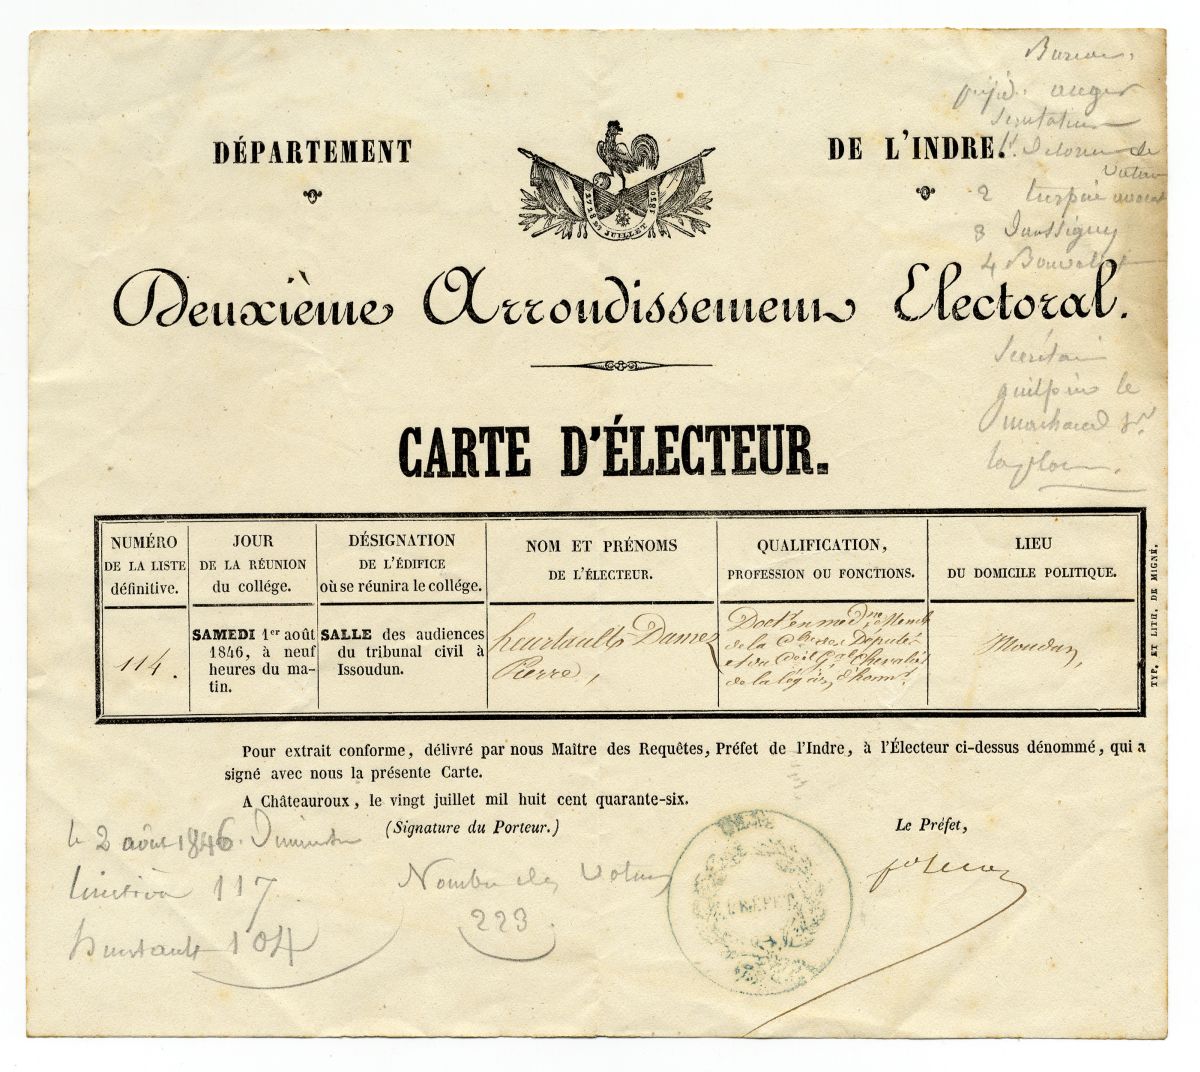 DÉPARTEMENT DE L'INDRE.
27 28 29 JUILLET 1830
Deuxième Arrondissement Electoral.
CARTE D'ÉLECTEUR.
NUMÉRO
DE LA LISTE
définitive.
JOUR
DE LA RÉUNION
du collége.
DÉSIGNATION
DE L'ÉDIFICE
où se réunira le collége.
NOM ET PRÉNOMS
DE L'ÉLECTEUR.
QUALIFICATION,
PROFESSION OU FONCTIONS.
LIEU
DU DOMICILE POLITIQUE.
114.
SAMEDI 1er août
1846, à neuf
heures du ma-
tin.
SALLE des audiences
du tribunal civil à
Issoudun.
heurtault Dumez
Pierre,
Doct. en med
de la Députés
et du Chevalier
de la d'honr.
TYP. ET LITH. DE MIGNÉ.
Pour extrait conforme, délivré par nous Maître des Requêtes, Préfet de l'Indre, à l'Électeur ci-dessus dénommé, qui a
signé avec nous la présente Carte.
A Châteauroux, le vingt juillet mil huit cent quarante-six.
(Signature du Porteur.)
Le Préfet,
Bureau
auger
2 turpin avocat
3
4
le
le 2 août 1846.
117
heurtault 104
Nombre des Votans
223
PRÉFET